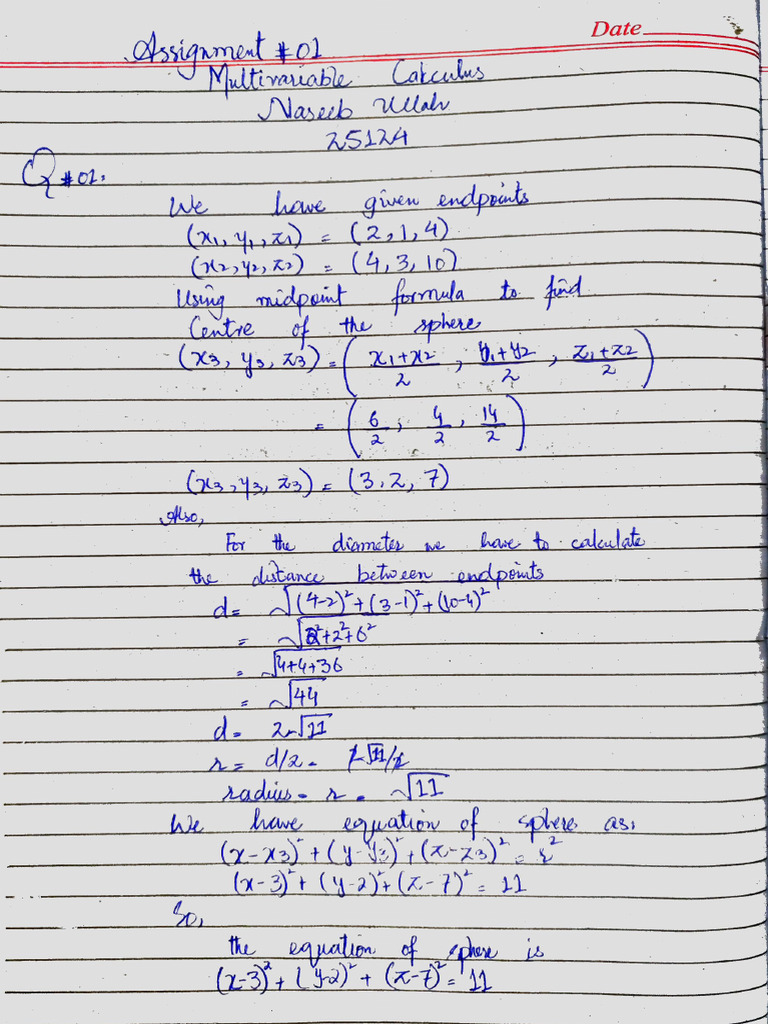 Date
Assignment #01
Multivariable Calculus
Naseeb Ullah
25124
Q#01.
We have given endpoints
(x1, y1, z1) = (2,1,4)
(x2, y2, z2) = (4,3,10)
Using midpoint formula to find
Centre of the sphere
(x3, y3, z3) = (x1+x2/2, y1+y2/2, z1+z2/2)
= (6/2, 4/2, 14/2)
(x3, y3, z3) = (3,2,7)
Also,
For the diameter we have to calculate
the distance between endpoints
d= √(4-2)²+(3-1)²+(10-4)²
= √2²+2²+6²
= √4+4+36
= √44
d= 2√11
r= d/2 = 2√11/2
radius = r = √11
We have equation of sphere as,
(x-x3)²+(y-y3)²+(z-z3)² = r²
(x-3)²+(y-2)²+(z-7)² = 11
So,
the equation of sphere is
(x-3)²+(y-2)²+(z-7)² = 11